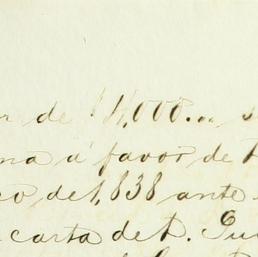 r de $4,000... s
na á favor de
co de 1,838 ante
carta de P. Gui